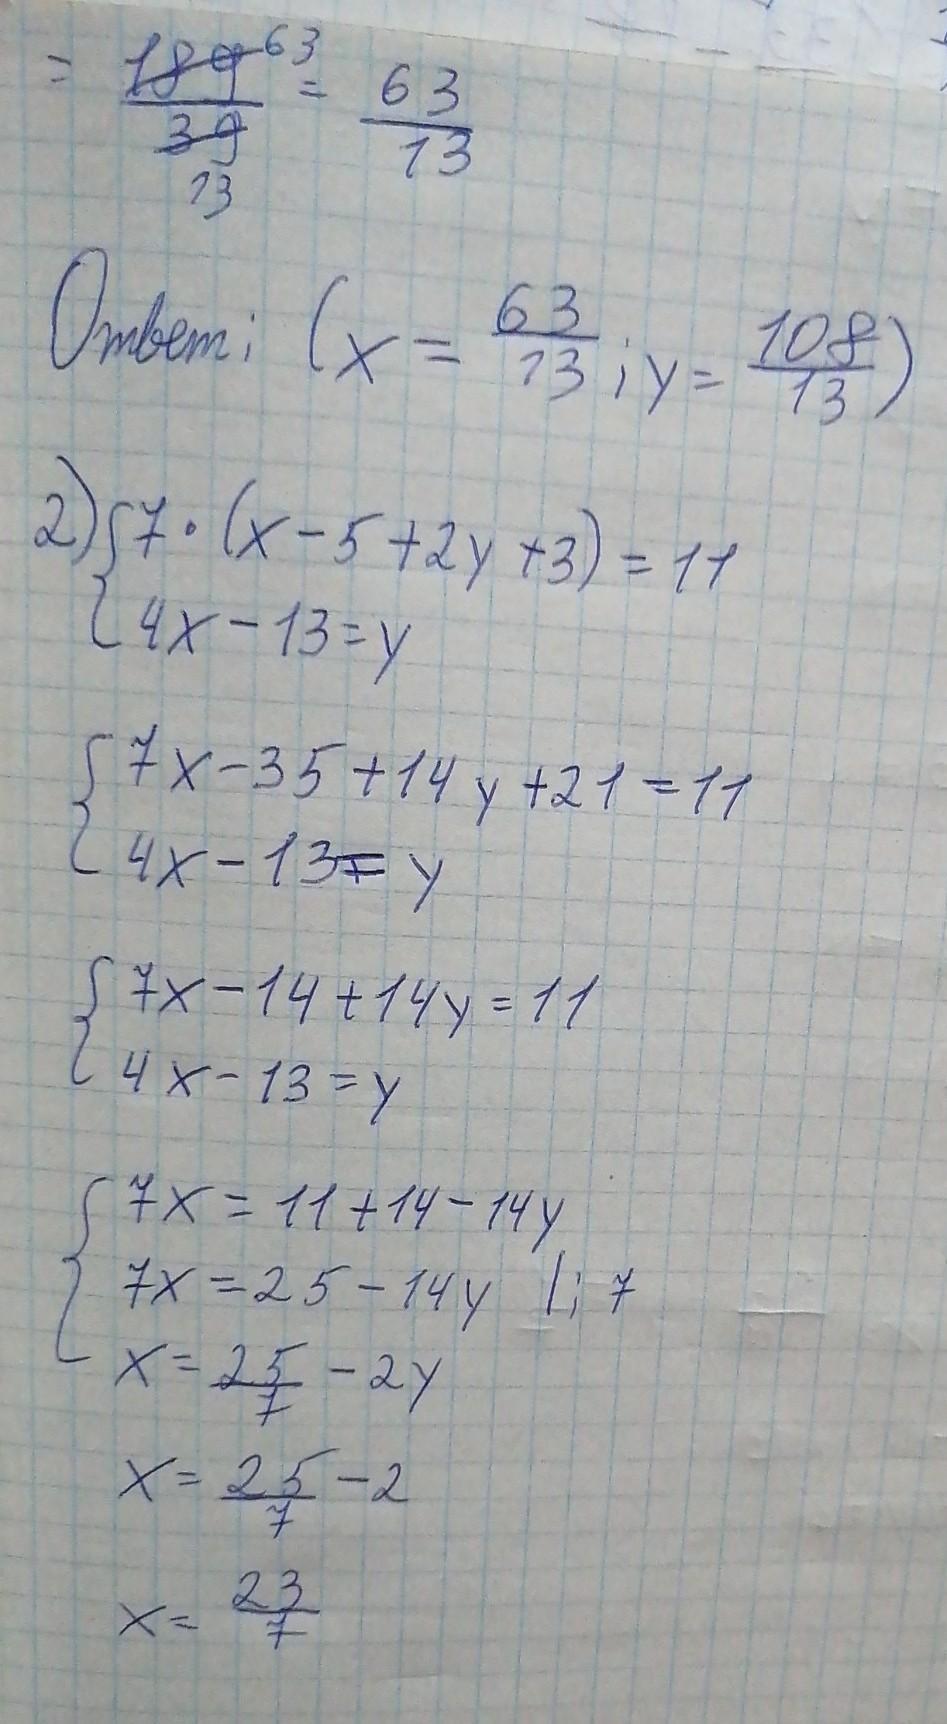 = 189 63 / 39 13 = 63/13
Ответ: (x = 63/13; y = 108/13)
2) { 7 · (x - 5 + 2y + 3) = 11
4x - 13 = y
{ 7x - 35 + 14y + 21 = 11
4x - 13 = y
{ 7x - 14 + 14y = 11
4x - 13 = y
{ 7x = 11 + 14 - 14y
7x = 25 - 14y |: 7
x = 25/7 - 2y
x = 25/7 - 2
x = 23/7